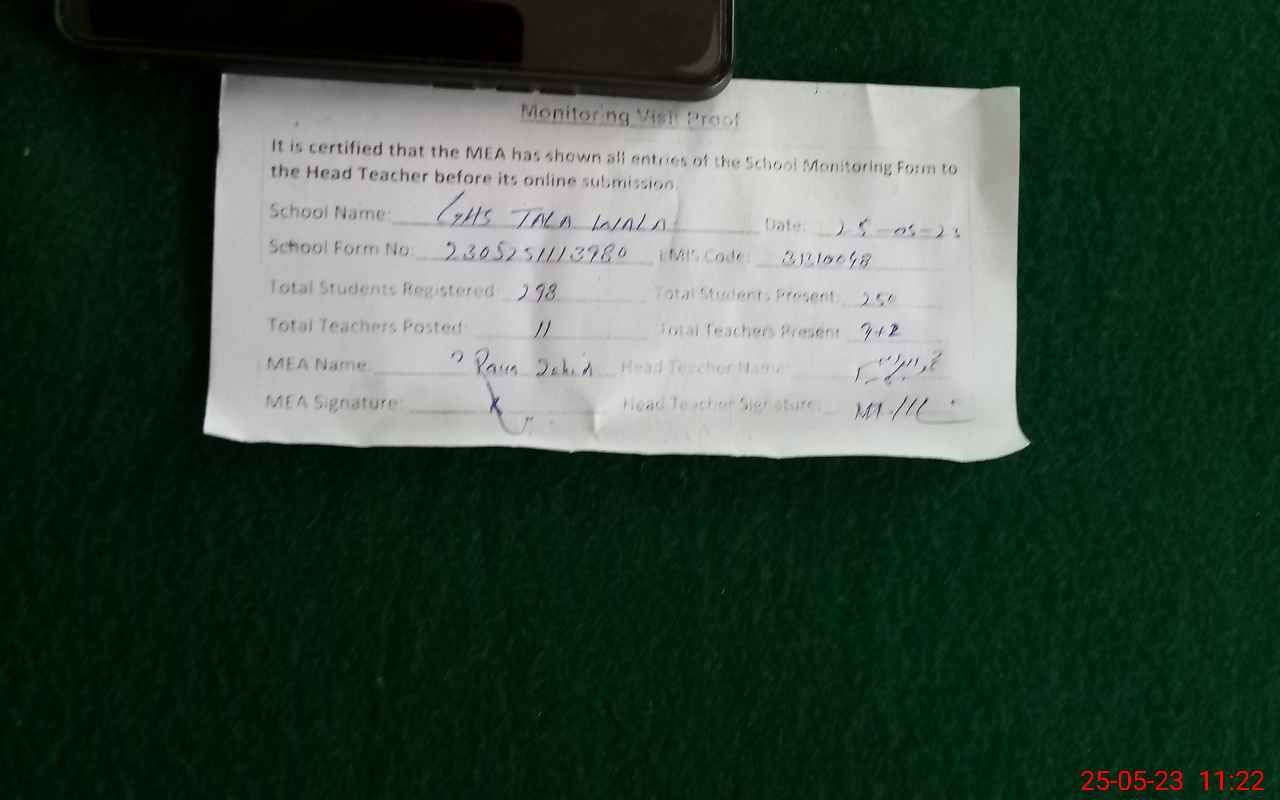 Monitoring Visit Proof
It is certified that the MEA has shown all entries of the School Monitoring Form to
the Head Teacher before its online submission.
School Name: GHS TALA WALA Date: 25-05-23
School Form No: 2305251113980 EMIS Code: 31310048
Total Students Registered 298 Total Students Present: 250
Total Teachers Posted 11 Total Teachers Present 9+2
MEA Name: Rana Head Teacher Name:
MEA Signature: Head Teacher Signature:
25-05-23 11:22